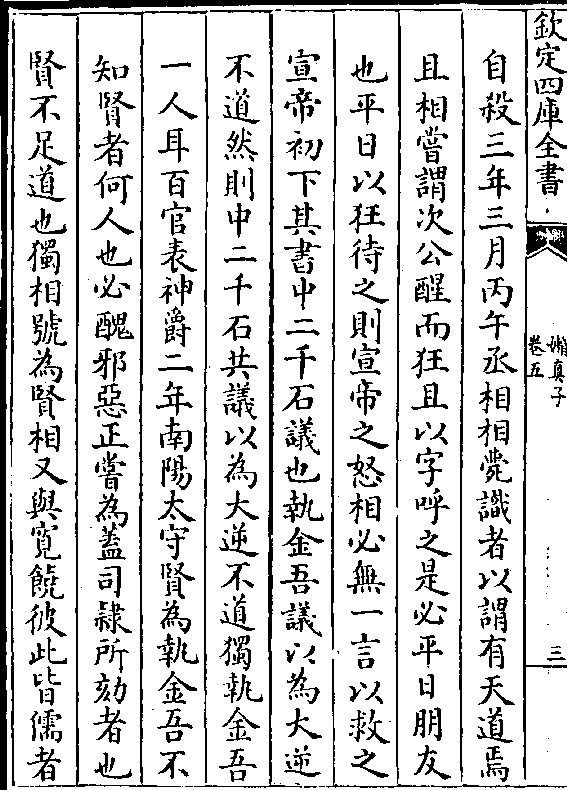 欽定四庫全書
嬾真子
卷五
三
自殺三年三月丙午丞相相薨識者以謂有天道焉
且相嘗謂次公醒而狂且以字呼之是必平日朋友
也平日以狂待之則宣帝之怒相必無一言以救之
宣帝初下其書中二千石議也執金吾議以為大逆
不道然則中二千石共議以為大逆不道獨執金吾
一人耳百官表神爵二年南陽太守賢為執金吾不
知賢者何人也必醜邪惡正嘗為蓋司隸所劾者也
賢不足道也獨相號為賢相又與寛饒彼此皆儒者